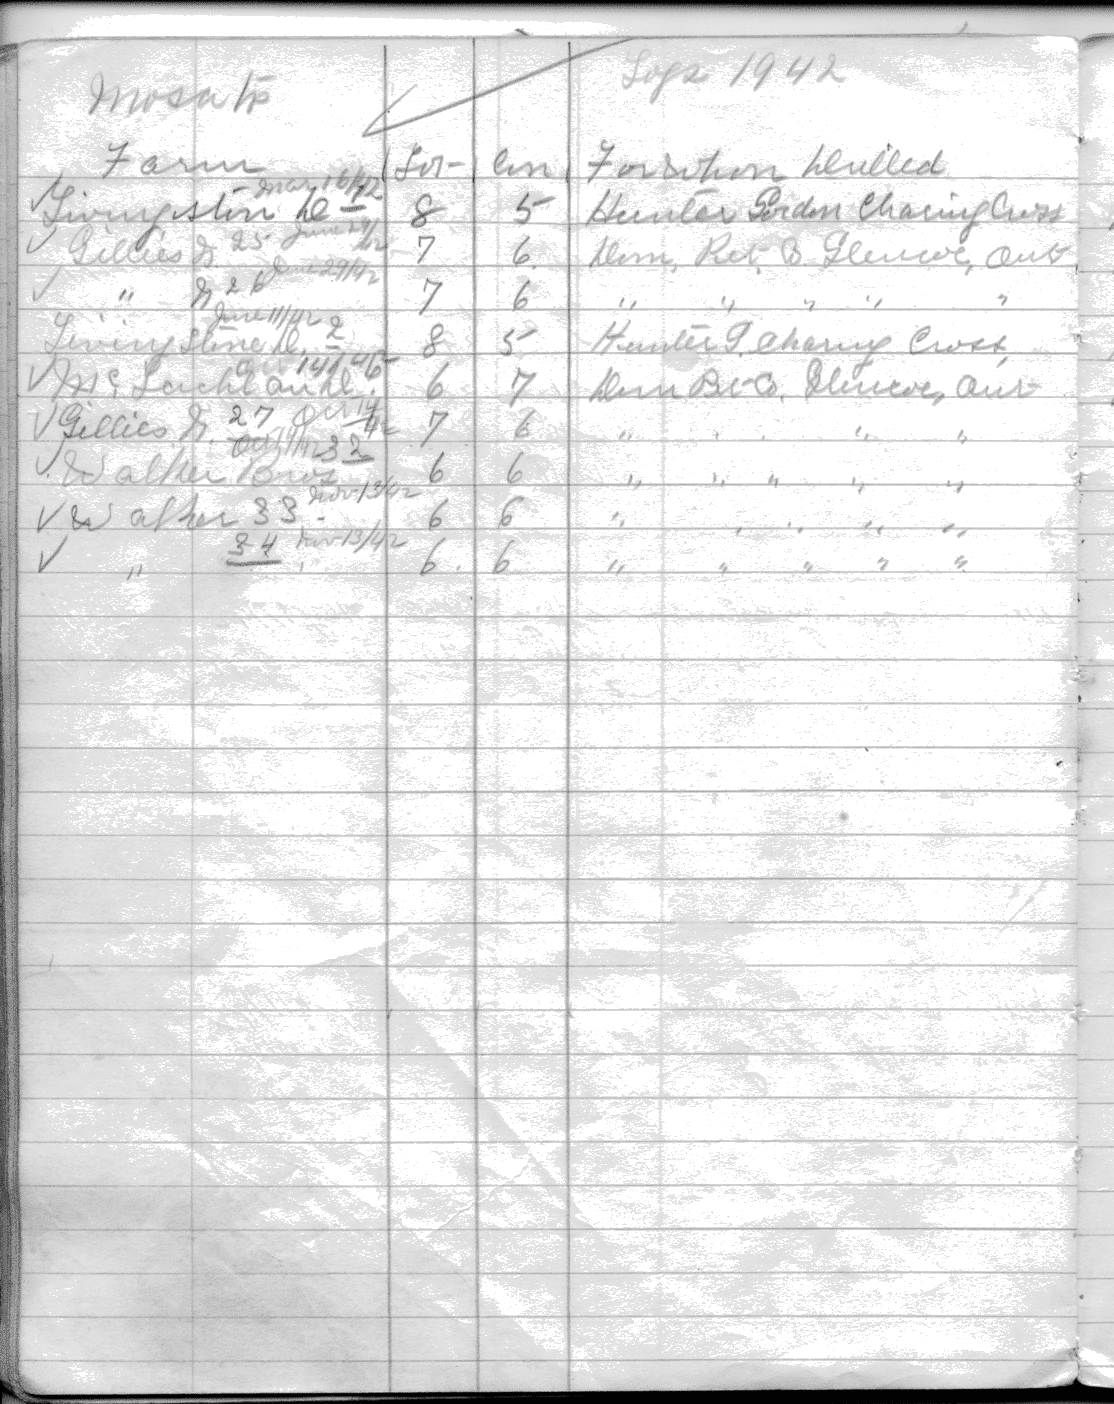 Mosa tp Logs 1942
Farm Lot Con For whom Drilled
✓ Livingston D 1 Mar 16/42 8 5 Hunter Gordon Charing Cross
✓ Gillies N. 25 June 29/42 7 6 Dom, Ref, Glencoe, Ont
✓ " N 26 June 29/42 7 6 " " " " "
Livingstone D. 2 June 11/42 8 5 Hunter G. Charing Cross
✓ Mc Lachlan D. 1 6 7 Dom Glencoe, Ont
✓ Gillies N. 27 Oct 42 7 6 " " " " "
✓ Walker Bros 32 6 6 " " " " "
✓ Walker 33 Nov 13/42 6 6 " " " " "
✓ " 34 Nov 13/42 6 6 " " " " "